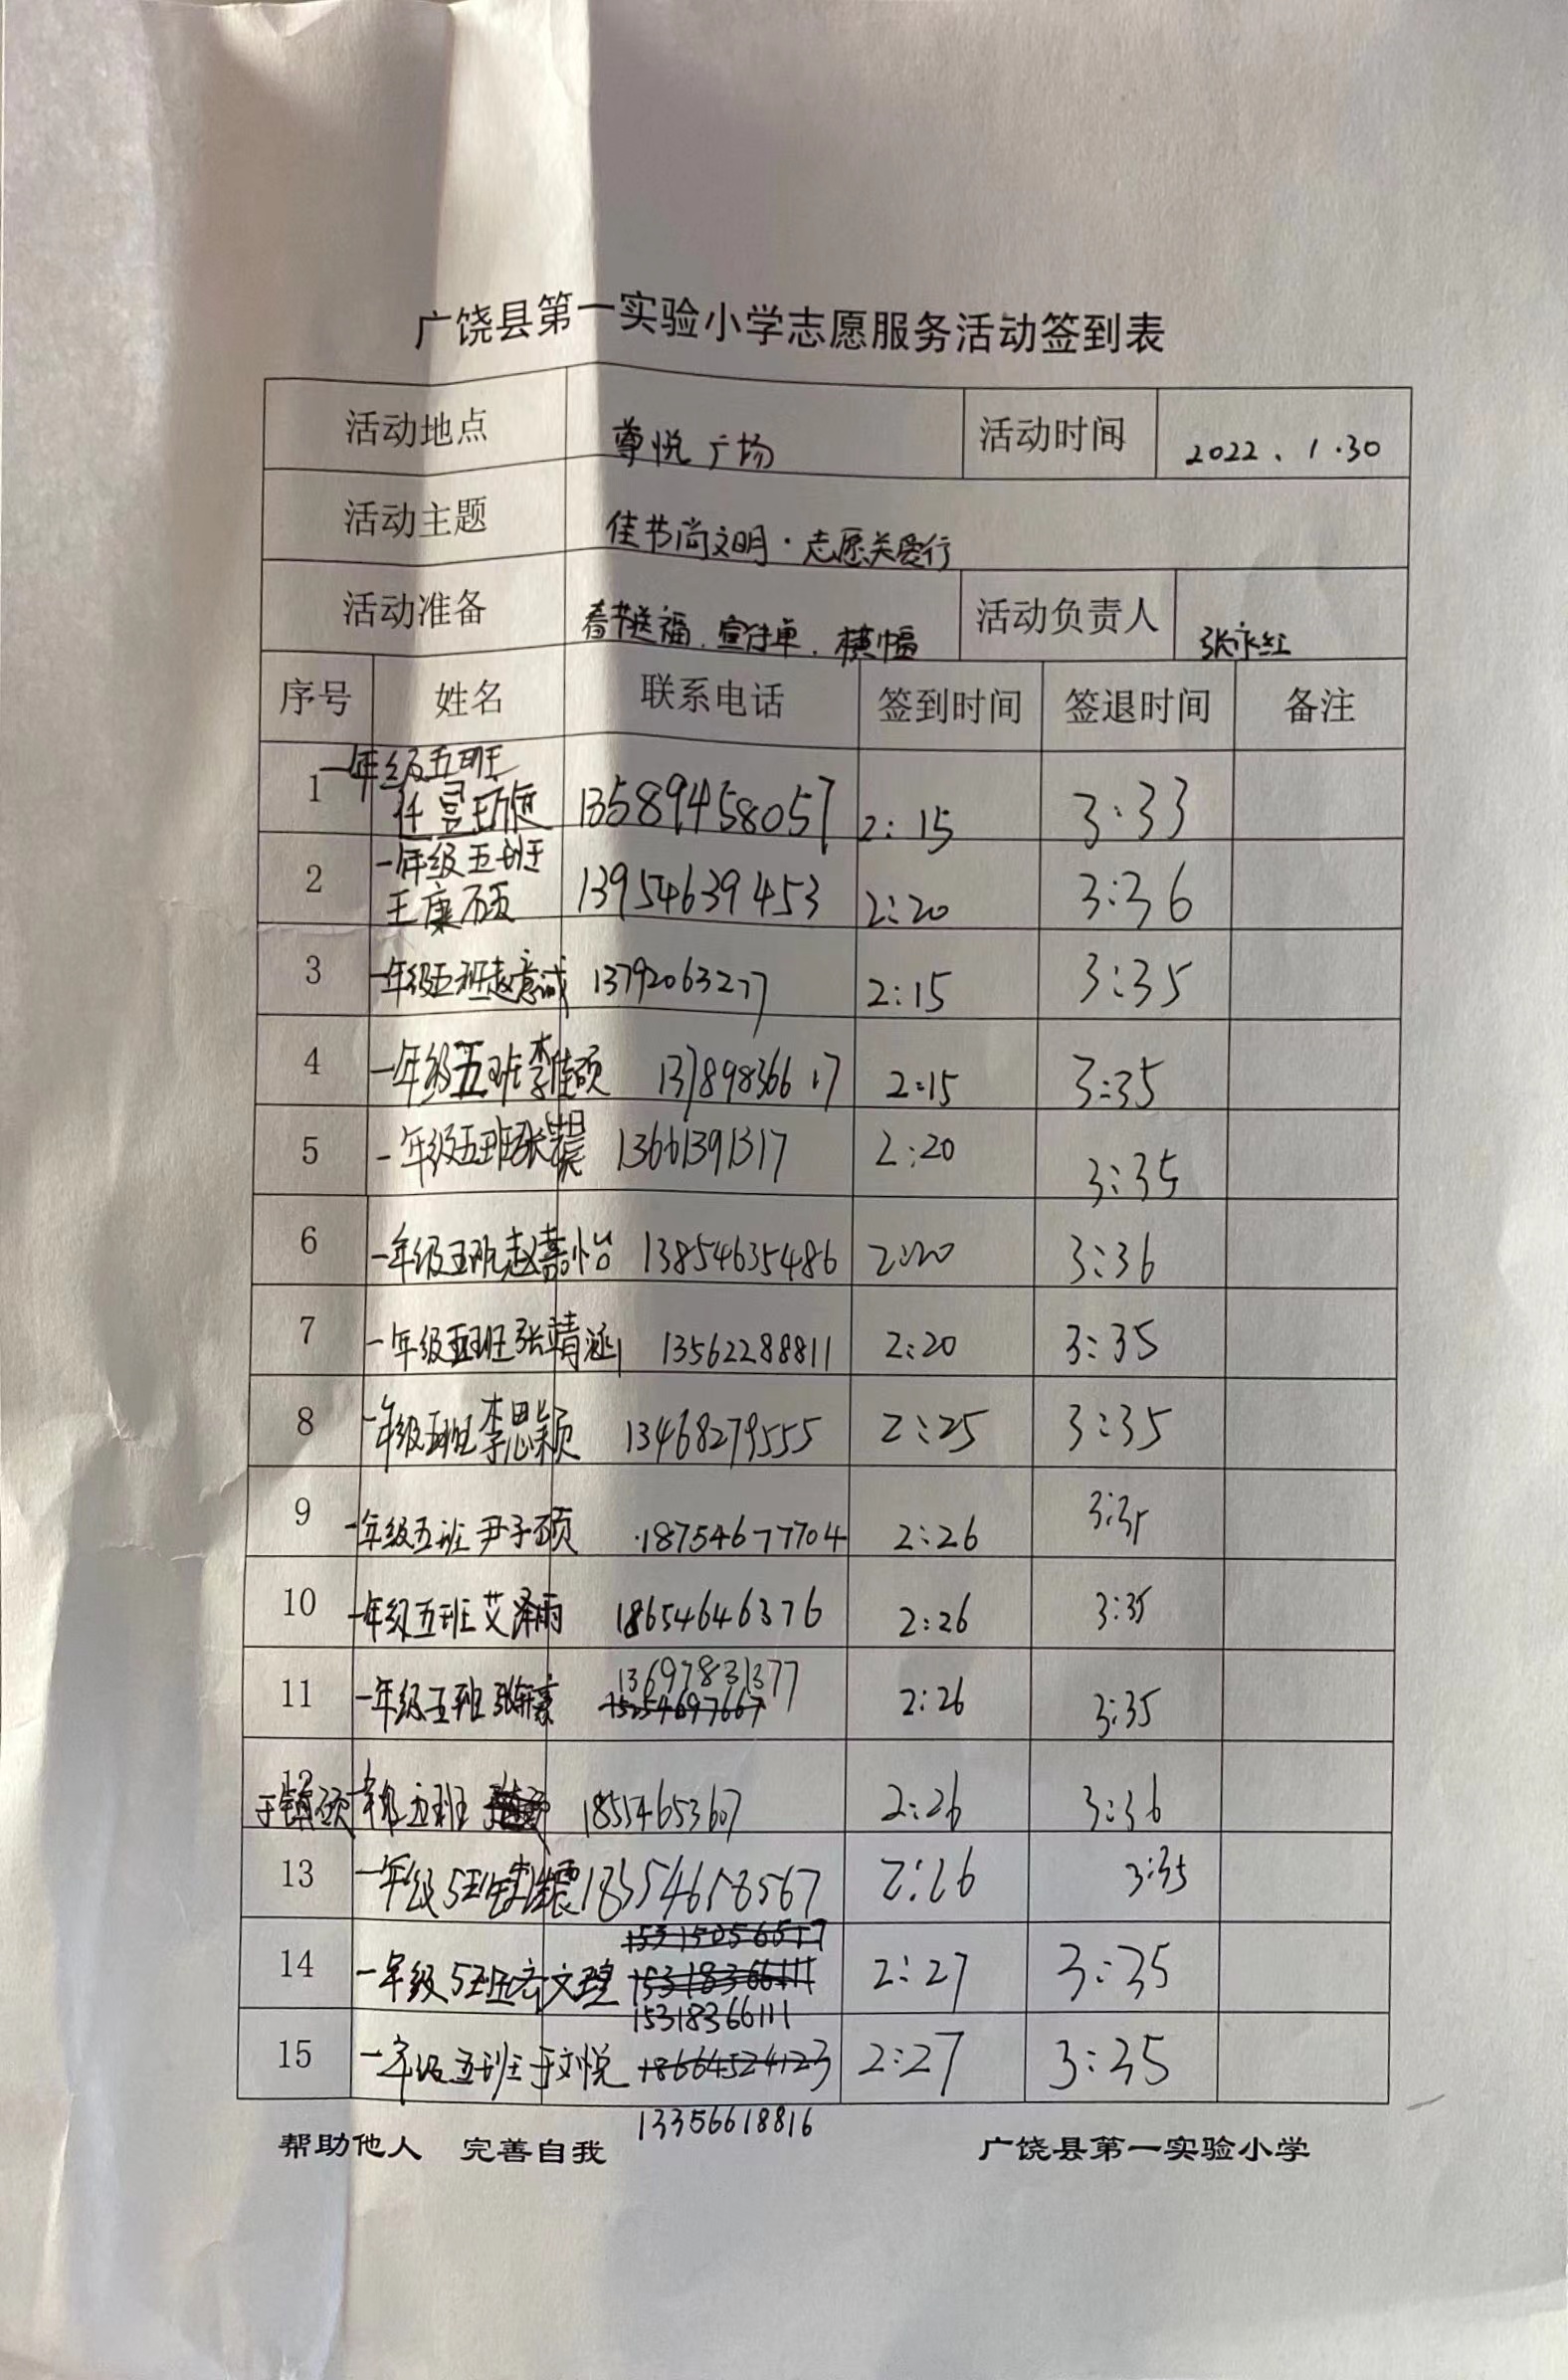 广饶县第一实验小学志愿服务活动签到表
活动地点 尊悦广场 活动时间 2022、1.30
活动主题 佳节尚文明·志愿关爱行
活动准备 春节送福、宣传单、横幅 活动负责人 张永红
序号 姓名 联系电话 签到时间 签退时间 备注
一年级五班
1 任 13589458057 2:15 3:33
一年级五班
2 王康硕 13954639453 2:20 3:36
3 一年级五班赵意诚 13792063277 2:15 3:35
4 一年级五班李佳硕 13789836617 2:15 3:35
5 一年级五班张 13661391317 2:20 3:35
6 一年级五班赵嘉怡 13854635486 2:20 3:36
7 一年级五班张靖涵 13562288811 2:20 3:35
8 一年级五班李思颖 13468279555 2:25 3:35
9 一年级五班尹子硕 18754677704 2:26 3:35
10 一年级五班艾泽雨 18654646376 2:26 3:35
13697831377
11 一年级五班张轩豪 15254697667 2:26 3:35
12 于镇硕 一年级五班 18554653607 2:26 3:36
13 一年级5班 18354618567 2:26 3:35
15315056517
14 一年级5班 文 15318366111 2:27 3:35
15318366111
15 一年级五班于文悦 18664524123 2:27 3:35
13356618816
帮助他人 完善自我 广饶县第一实验小学